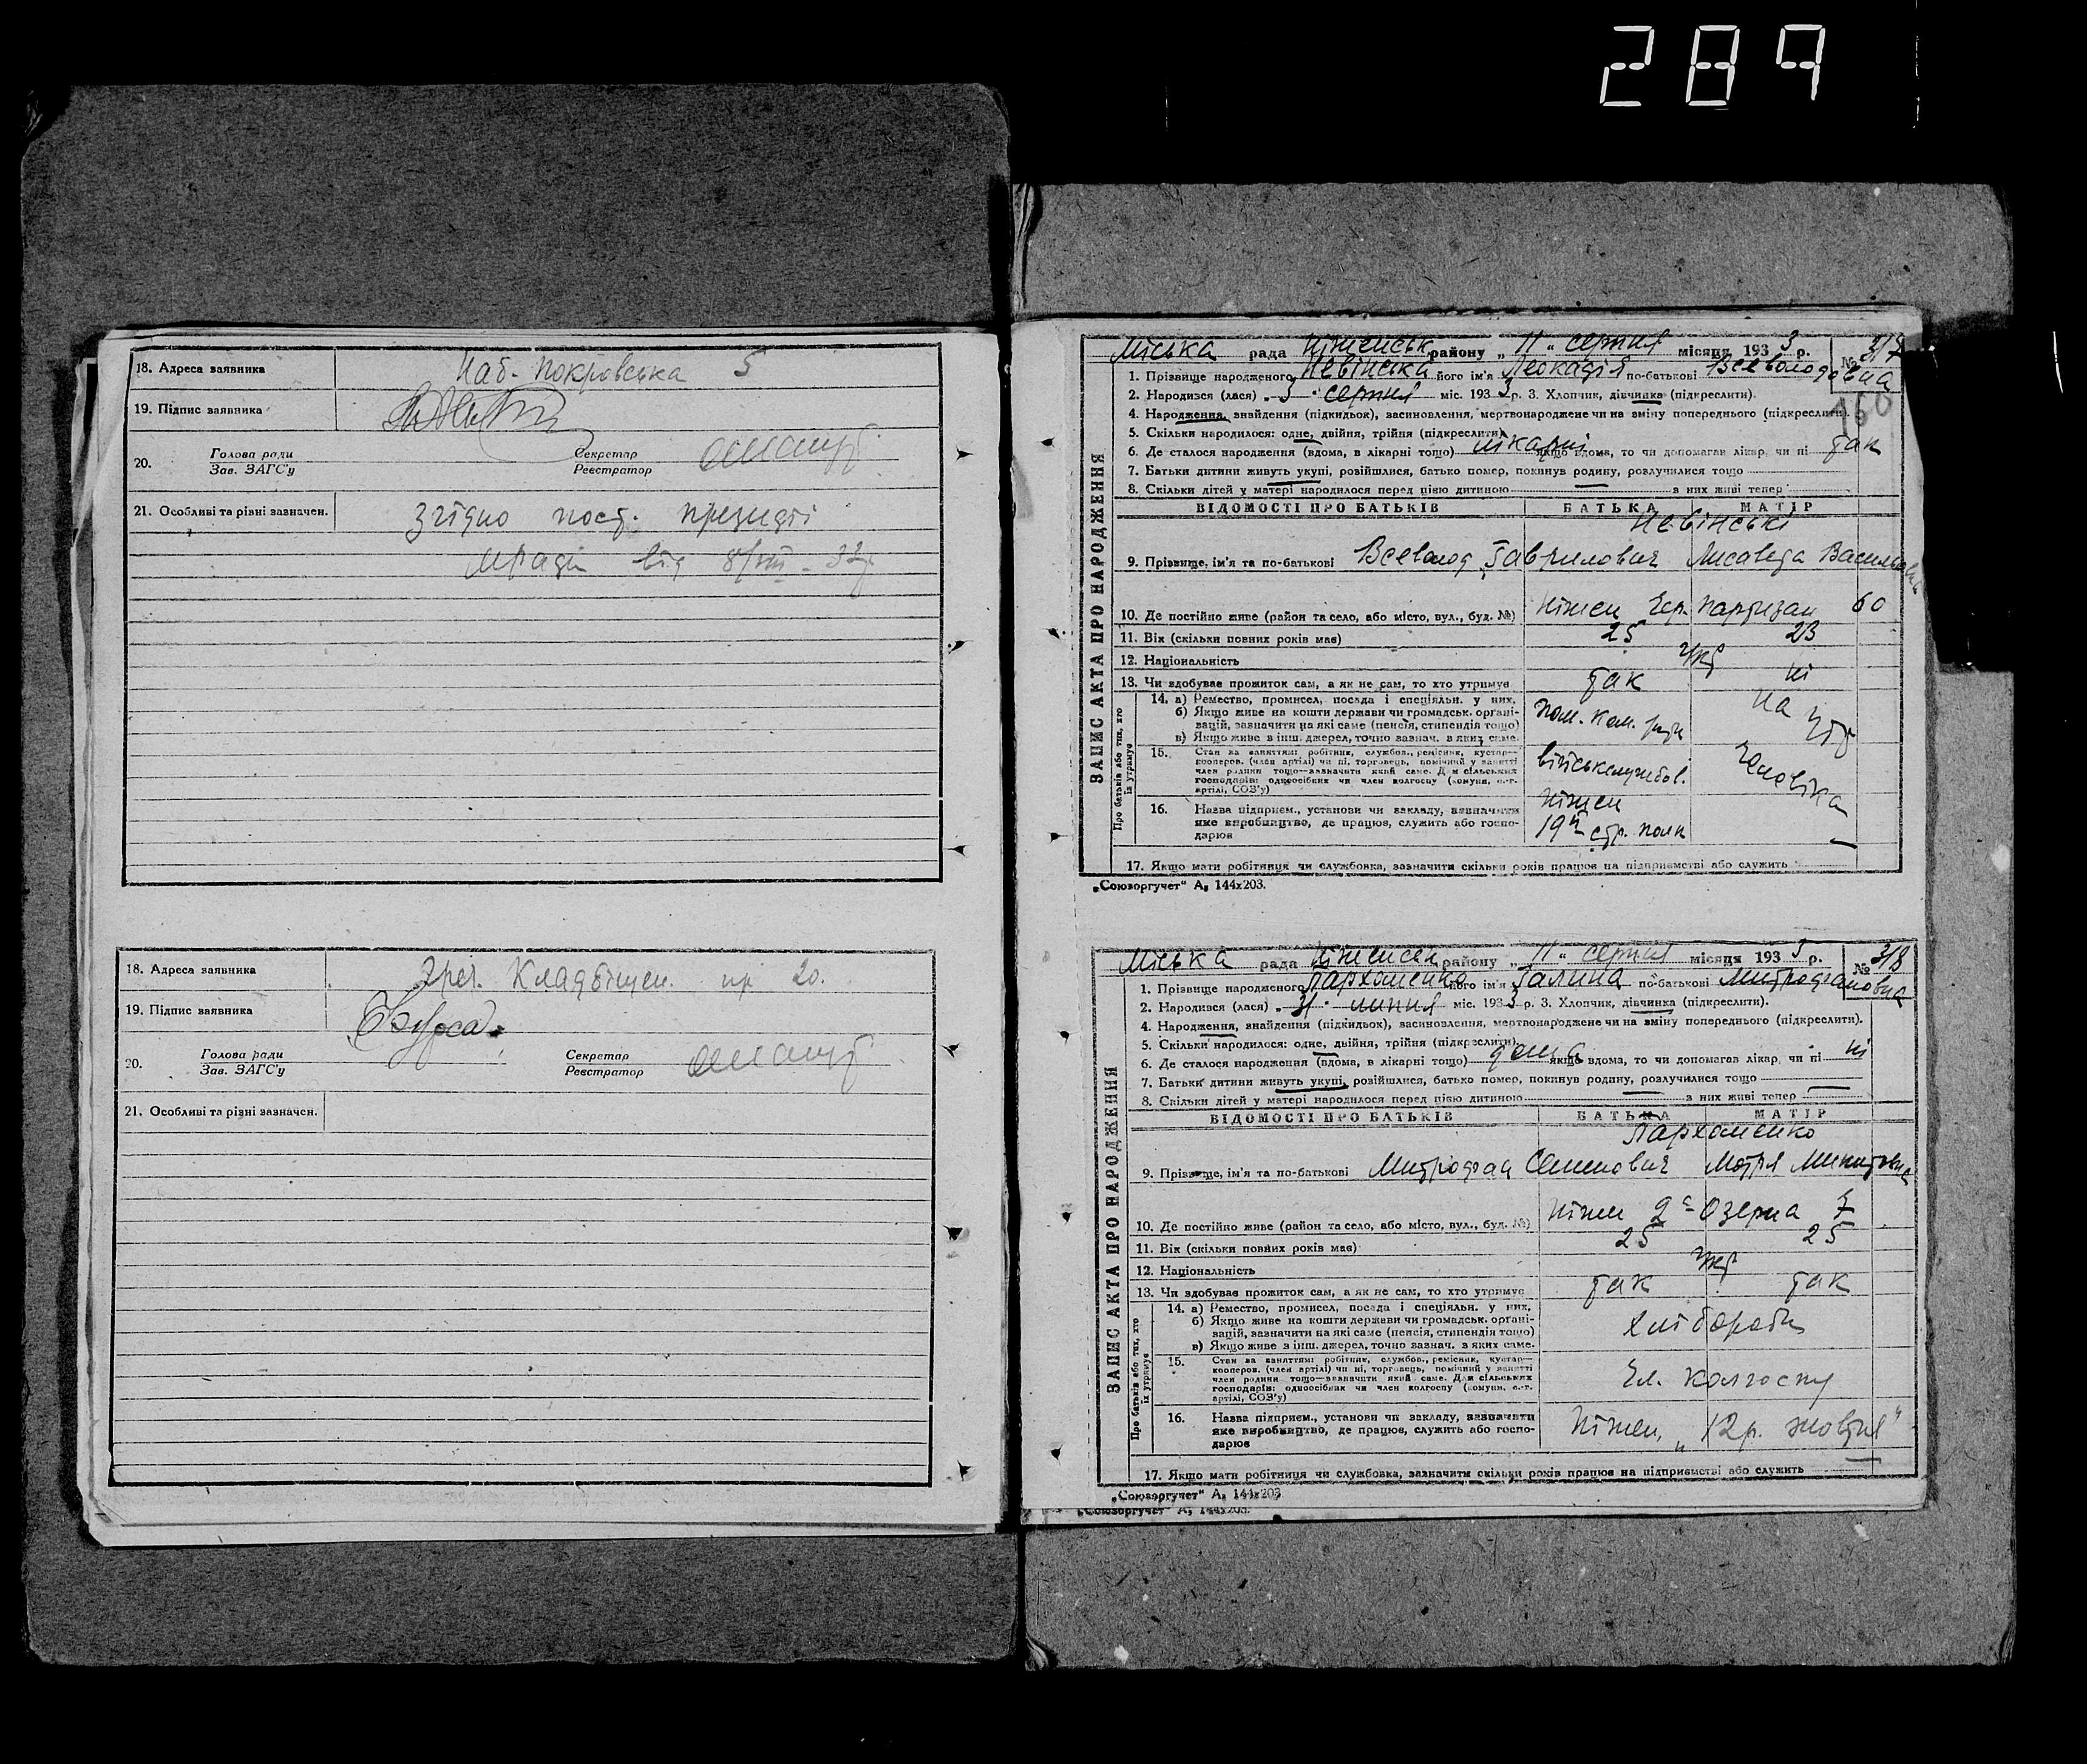 289
18. Адреса заявника Наб. Покровська 5
19. Підпис заявника
20. Голова ради Секретар
Зав. ЗАГС'у Реєстратор
21. Особливі та різні зазначен. Згідно пост. президії
мради від 8/VIII - 33р.
18. Адреса заявника Грец. Кладбіщен. пр 20.
19. Підпис заявника
20. Голова ради Секретар
Зав. ЗАГС'у Реєстратор
21. Особливі та різні зазначен.
ЗАПИС АКТА ПРО НАРОДЖЕННЯ
Міська рада Ніженськ району „ 11 “ серпня місяця 1933 р. № 317
1. Прізвище народженого Невінська його ім'я Леокадія по-батькові Всеволодовна
2. Народився (лася) 3 серпня міс. 1933 р. 3. Хлопчик, дівчинка (підкреслити).
160
4. Народження, знайдення (підкидьок), засиновлення, мертвонароджене чи на зміну попереднього (підкреслити).
5. Скільки народилося: одне, двійня, трійня (підкреслити)
6. Де сталося народження (вдома, в лікарні тощо) лікарні якщо вдома, то чи допомагав лікар, чи ні так
7. Батьки дитини живуть укупі, розійшлися, батько помер, покинув родину, розлучилися тощо
8. Скільки дітей у матері народилося перед цією дитиною — з них живі тепер
ВІДОМОСТІ ПРО БАТЬКІВ БАТЬКА МАТІР
Невінські
9. Прізвище, ім'я та по-батькові Всеволод Гаврилович Лисаведа Васильевна
10. Де постійно живе (район та село, або місто, вул., буд. №) Ніжен Чер. партизан 60
11. Вік (скільки повних років має) 25 23
12. Національність укр
13. Чи здобуває прожиток сам, а як не сам, то хто утримує так ні
Про батьків або тих, хто їх утримує
14. а) Ремество, промисел, посада і спеціяльн. у них. пом. ком. роти на утр
б) Якщо живе на кошти держави чи громадськ. органі-
зацій, зазначити на які саме (пенсія, стипендія тощо)
в) Якщо живе з інш. джерел, точно зазнач. в яких саме.
15. Стан за заняттям: робітник, службов., ремісник, кустар— військслужбов. чоловіка
кооперов. (член артілі) чи ні, торговець, помічний у занятті
член родини тощо—зазначити який саме. Для сільських
господарів: одноосібник чи член колгоспу (комуни, с.-г.
артілі, СОЗ'у)
16. Назва підприєм., установи чи закладу, зазначити Ніжен
яке виробництво, де працює, служить або госпо- 19й стр. полк —
дарює
17. Якщо мати робітниця чи службовка, зазначити скільки років працює на підприємстві або служить
„Союзоргучет“ А₅ 144х203.
ЗАПИС АКТА ПРО НАРОДЖЕННЯ
Міська рада Ніженськ району „ 11 “ серпня місяця 1933 р. № 318
1. Прізвище народженого Пархоменко його ім'я Галина по-батькові Митрофановна
2. Народився (лася) 31 липня міс. 1933 р. 3. Хлопчик, дівчинка (підкреслити).
4. Народження, знайдення (підкидьок), засиновлення, мертвонароджене чи на зміну попереднього (підкреслити).
5. Скільки народилося: одне, двійня, трійня (підкреслити)
6. Де сталося народження (вдома, в лікарні тощо) дома якщо вдома, то чи допомагав лікар, чи ні ні
7. Батьки дитини живуть укупі, розійшлися, батько помер, покинув родину, розлучилися тощо —
8. Скільки дітей у матері народилося перед цією дитиною — з них живі тепер
ВІДОМОСТІ ПРО БАТЬКІВ БАТЬКА МАТІР
Пархоменко
9. Прізвище, ім'я та по-батькові Митрофан Семенович Мотря Микитовна
10. Де постійно живе (район та село, або місто, вул., буд. №) Ніжен 2а Озерна 7
11. Вік (скільки повних років має) 25 25
12. Національність укр
13. Чи здобуває прожиток сам, а як не сам, то хто утримує так так
Про батьків або тих, хто їх утримує
14. а) Ремество, промисел, посада і спеціяльн. у них. хліборобы
б) Якщо живе на кошти держави чи громадськ. органі-
зацій, зазначити на які саме (пенсія, стипендія тощо)
в) Якщо живе з інш. джерел, точно зазнач. в яких саме.
15. Стан за заняттям: робітник, службов., ремісник, кустар— Чл. колгоспу
кооперов. (член артілі) чи ні, торговець, помічний у занятті
член родини тощо—зазначити який саме. Для сільських
господарів: одноосібник чи член колгоспу (комуни, с.-г.
артілі, СОЗ'у)
16. Назва підприєм., установи чи закладу, зазначити Ніжен, „12 р. жовтня“
яке виробництво, де працює, служить або госпо-
дарює
17. Якщо мати робітниця чи службовка, зазначити скільки років працює на підприємстві або служить —
„Союзоргучет“ А₅ 144х203
„Союзоргучет“ А₅ 144х203.